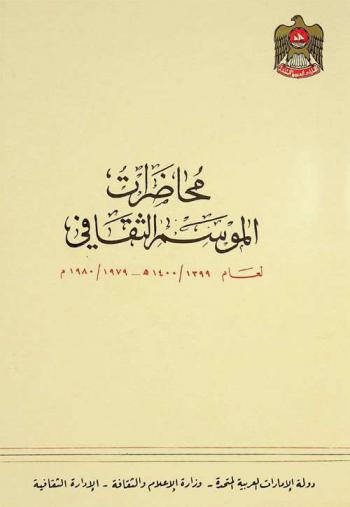 محاضرات
الموسم الثقافي
لعام ١٣٩٩/١٤٠٠ هـ - ١٩٧٩/١٩٨٠ م
دولة الإمارات العربية المتحدة - وزارة الإعلام والثقافة - الإدارة الثقافية